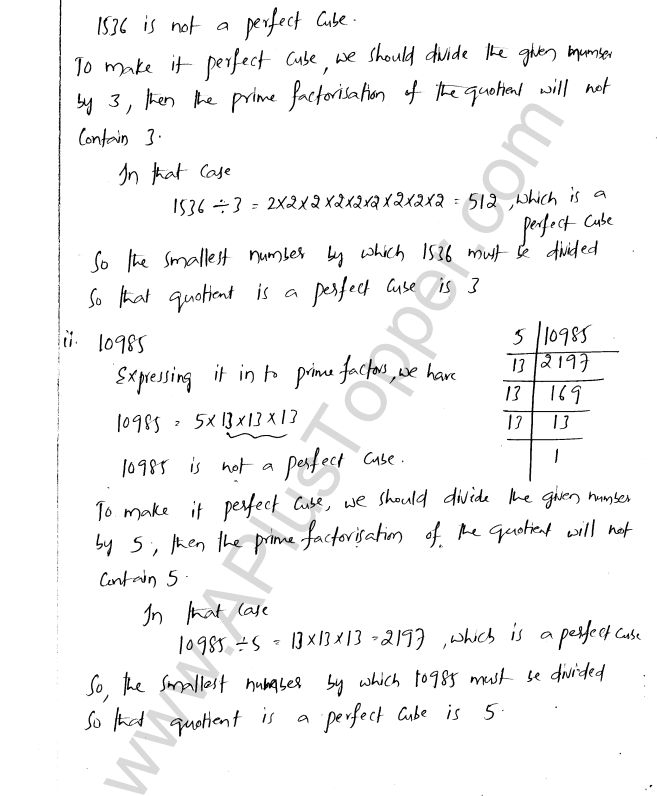 1536 is not a perfect Cube.
To make it perfect Cube, we should divide the given number
by 3, then the prime factorisation of the quotient will not
Contain 3.
In that case
1536 ÷ 3 = 2×2×2×2×2×2×2×2×2 = 512, which is a
perfect Cube
So the smallest number by which 1536 must be divided
So that quotient is a perfect Cube is 3
ii. 10985
Expressing it in to prime factors, we have
10985 = 5×13×13×13
5 | 10985
13 | 2197
13 | 169
13 | 13
1
10985 is not a perfect Cube.
To make it perfect Cube, we should divide the given number
by 5, then the prime factorisation of the quotient will not
Contain 5.
In that Case
10985 ÷ 5 = 13×13×13 = 2197, which is a perfect Cube
So, the smallest number by which 10985 must be divided
So that quotient is a perfect Cube is 5.
www.APlusTopper.com